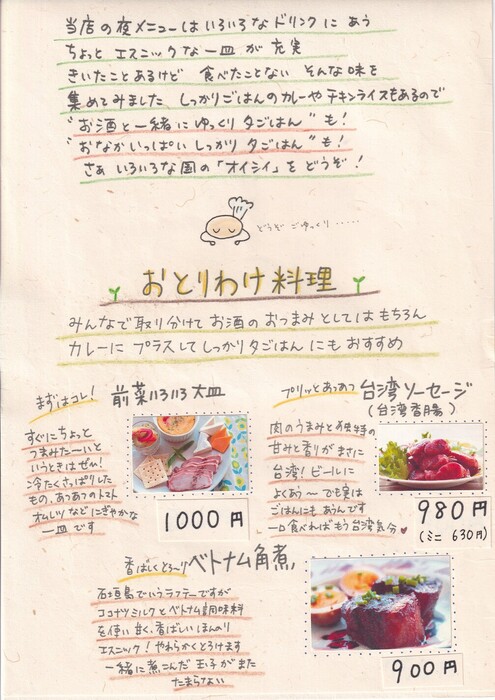 当店の夜メニューはいろいろなドリンクにあう
ちょっとエスニックな一皿が充実
きいたことあるけど 食べたことない そんな味を
集めてみました しっかりごはんのカレーやチキンライスもあるので
"お酒と一緒にゆっくり夕ごはん"も!
"おなかいっぱいしっかり夕ごはん"も!
さぁ いろいろな国の「オイシイ」をどうぞ!
どうぞごゆっくり・・・・・
おとりわけ料理
みんなで取り分けてお酒のおつまみとしてはもちろん
カレーにプラスしてしっかり夕ごはんにもおすすめ
まずはコレ!
前菜いろいろ大皿
すぐにちょっと
つまみた〜いと
いうときはぜひ!
冷たくさっぱりした
もの、あつあつのトマト
オムレツなどにぎやかな
一皿です
1000円
プリッとあつあつ
台湾ソーセージ
(台湾香腸)
肉のうまみと独特の
甘みと香りがまさに
台湾!ビールに
よくあう〜でも実は
ごはんにもあうんです
一口食べればもう台湾気分
980円
(ミニ 630円)
香ばしくとろ〜り
ベトナム角煮
石垣島でいうラフテーですが
ココナツミルクとベトナム調味料
を使い甘く、香ばしいほんのり
エスニック!やわらかくとろけます
一緒に煮こんだ玉子がまた
たまらない
900円